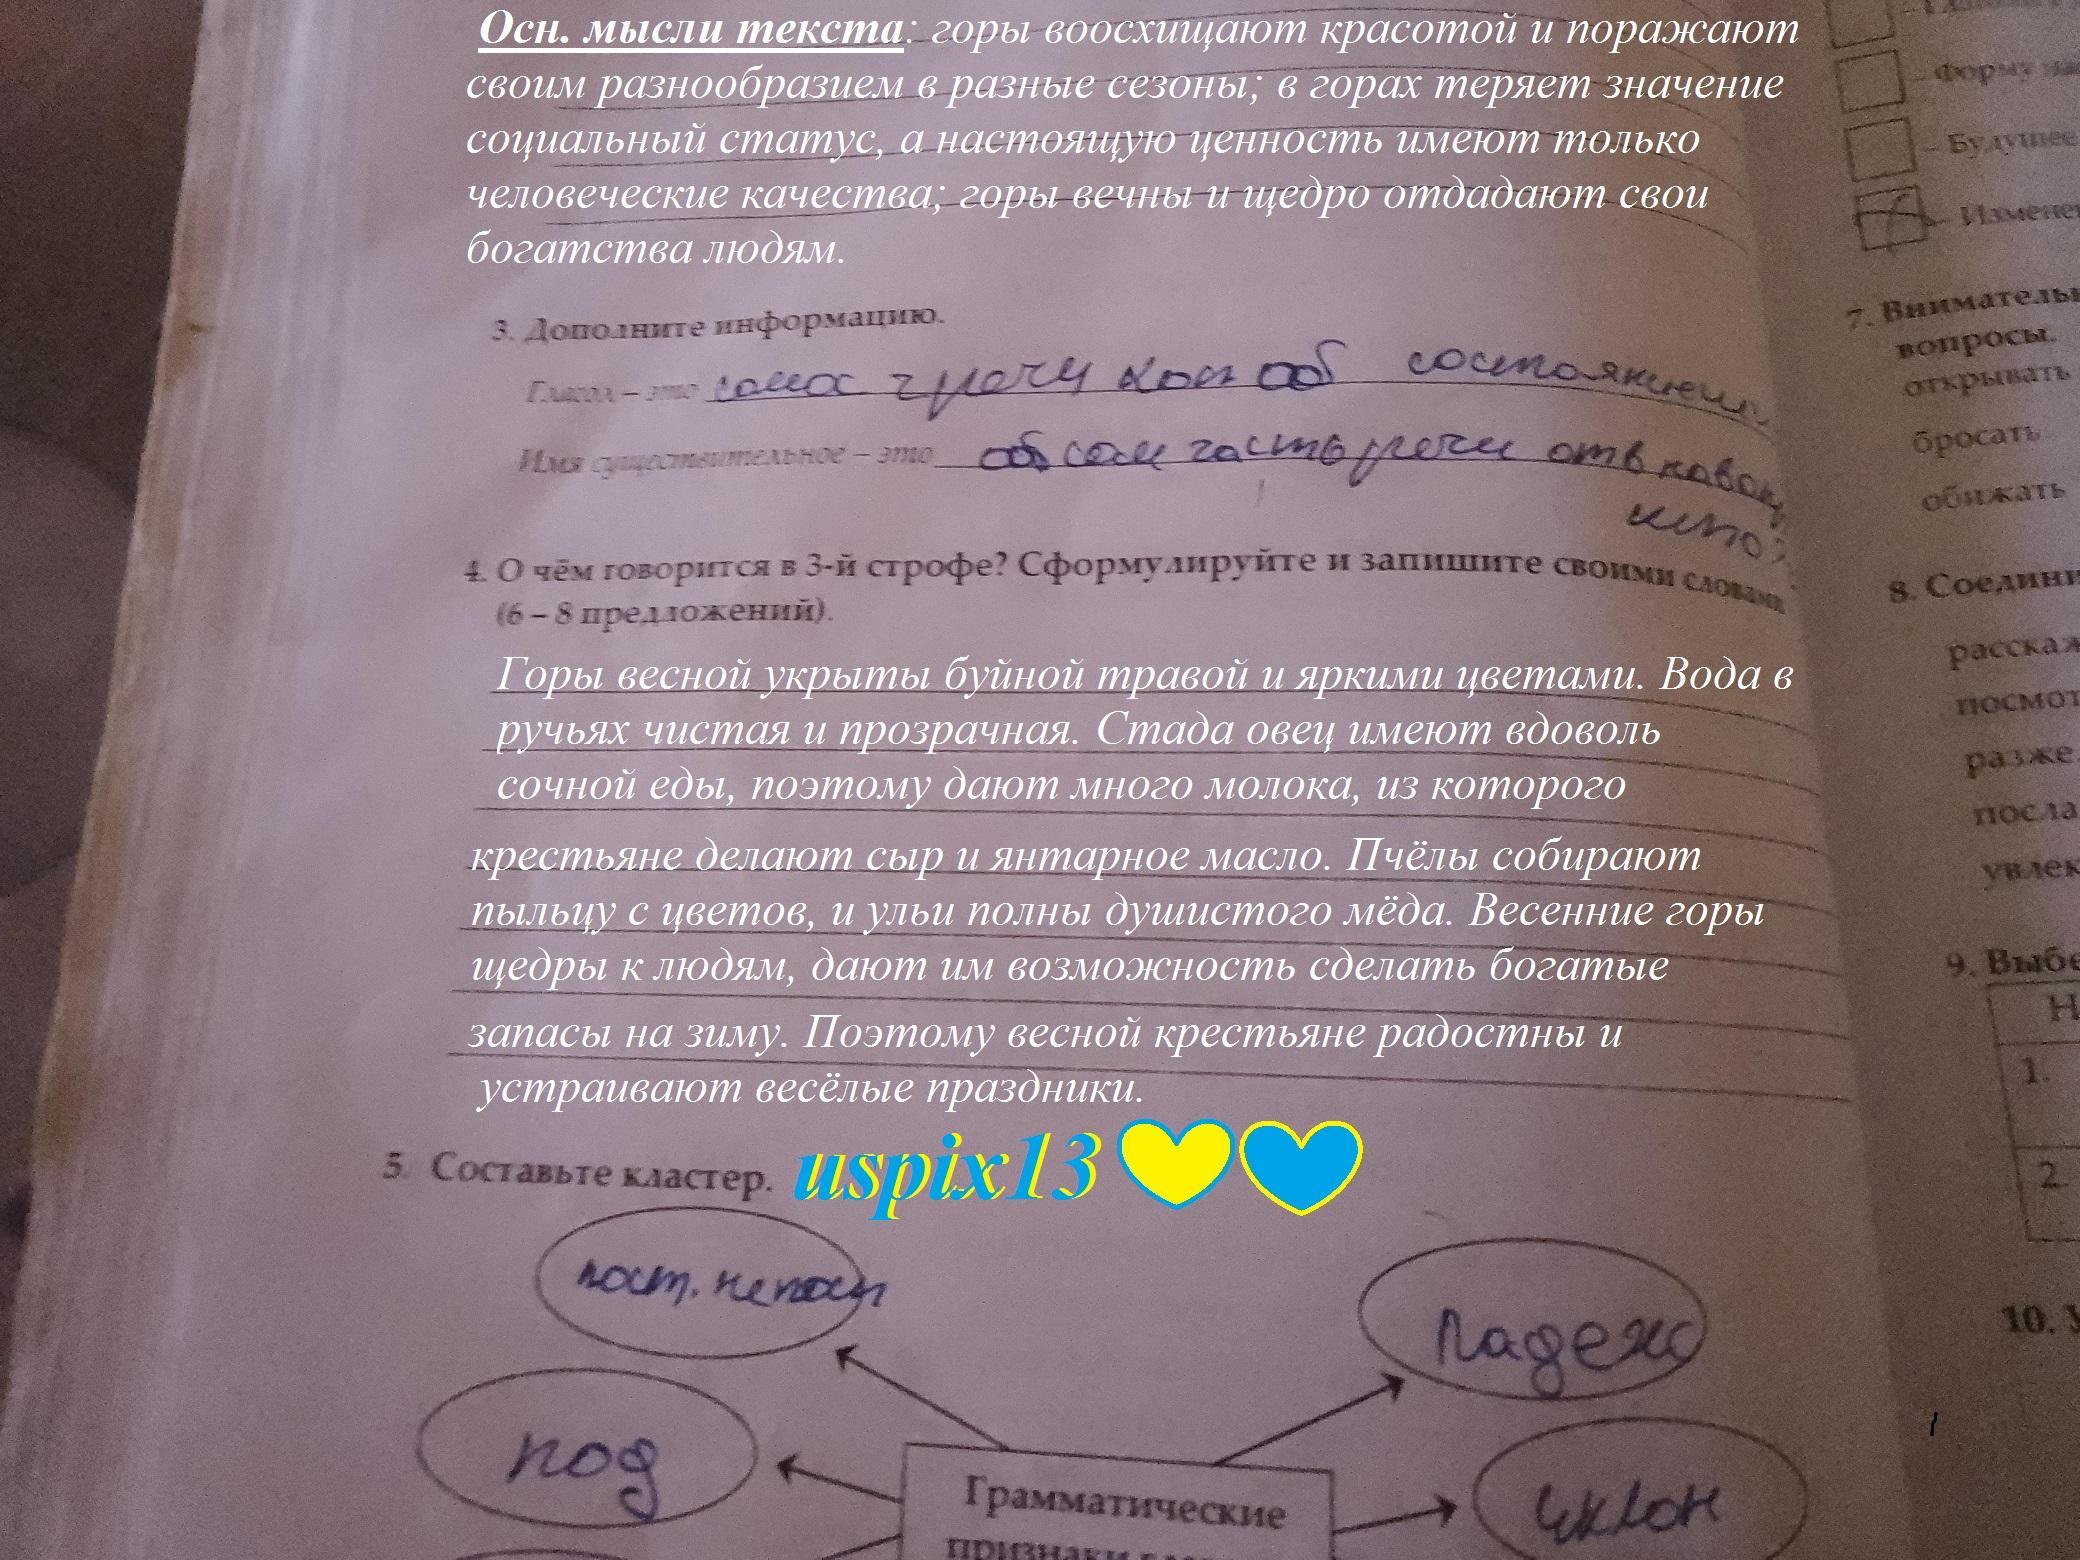 Осн. мысли текста: горы воосхищают красотой и поражают
своим разнообразием в разные сезоны; в горах теряет значение
социальный статус, а настоящую ценность имеют только
человеческие качества; горы вечны и щедро отдадают свои
богатства людям.
3. Дополните информацию.
Глагол – это самос ч речи кот об состоянием
Имя существительное – это сам часть речи отв на воп
кто?
4. О чём говорится в 3-й строфе? Сформулируйте и запишите своими словами
(6 – 8 предложений).
Горы весной укрыты буйной травой и яркими цветами. Вода в
ручьях чистая и прозрачная. Стада овец имеют вдоволь
сочной еды, поэтому дают много молока, из которого
крестьяне делают сыр и янтарное масло. Пчёлы собирают
пыльцу с цветов, и ульи полны душистого мёда. Весенние горы
щедры к людям, дают им возможность сделать богатые
запасы на зиму. Поэтому весной крестьяне радостны и
устраивают весёлые праздники.
uspix13
5. Составьте кластер.
пост. непост
падеж
род
склон
Грамматические
признаки
– Форму
– Будущее
– Измене
7. Внимательн
вопросы.
открывать
бросать
обижать
8. Соедини
расскаж
посмот
разже
посла
увлек
9. Выбе
Н
1.
2.
10. У